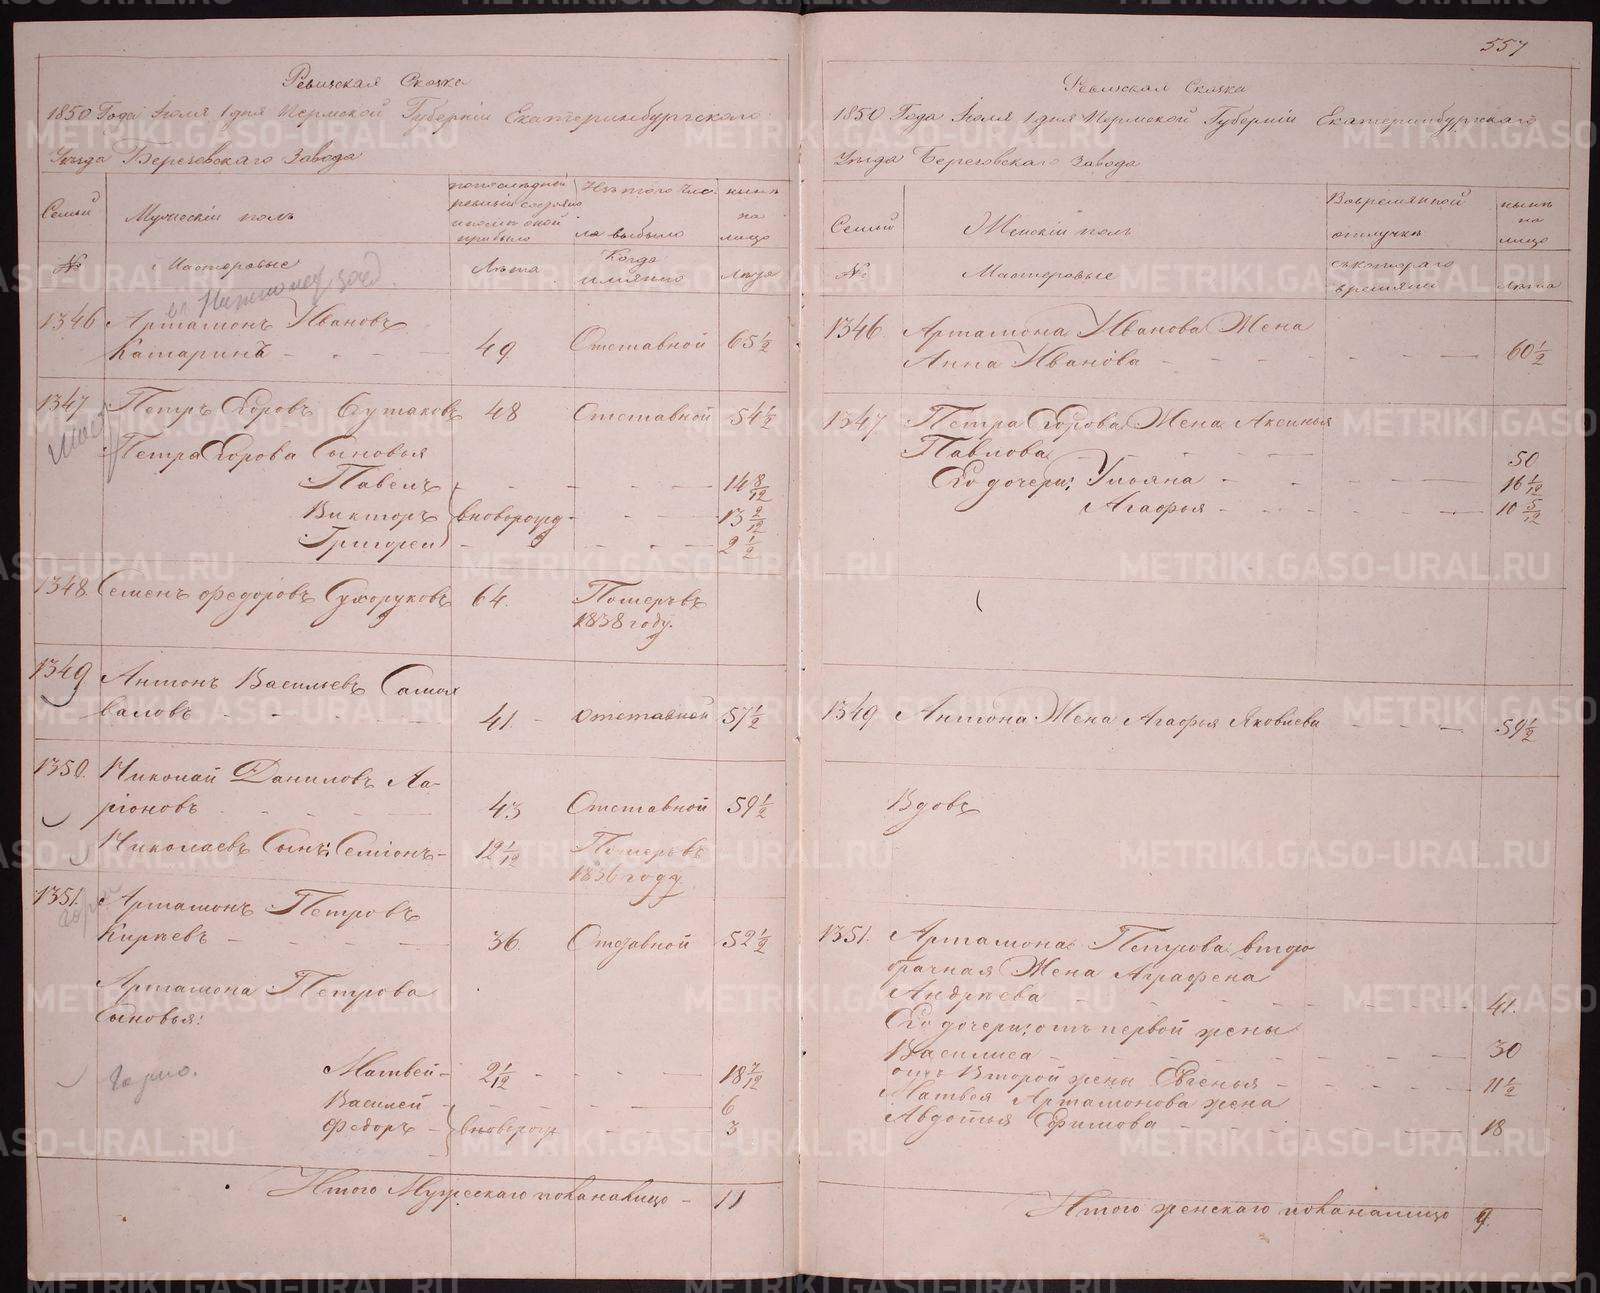 Ревизская Сказка
1850 Года Іюля 1 дня Пермской Губерніи Екатеринбургскаго
Уѣзда Березовскаго Завода
Семьи
Мужескій полъ
по последней
ревизіи состояло
и после оной
прибыло
Изъ того чис-
ла выбыло
нынѣ
на
лицо
№
Мастеровые
Лѣта
Когда
имянно
Лѣта
1346 Артамонъ Ивановъ
Катаринъ - - - - 49 Отставной 65 1/2
1347 Петръ Егоровъ Бутаковъ 48 Отставной 54 1/2
Петра Егорова Сыновья
Павелъ - - - - 14 8/12
Викторъ вноворожд - - - 13 2/12
Григорей - - - - 2 1/2
1348. Семенъ Федоровъ Сухоруковъ 64. Померъ въ
1838 году.
1349. Антонъ Васильевъ Самой
валовъ - - - - 41. - Отставной 57 1/2
1350. Николай Даниловъ Ла-
ріоновъ - - - - 43 Отставной 59 1/2
Николаевъ Сынъ: Семіонъ - 12 1/12 Померъ въ
1836 году
1351. Артамонъ Петровъ
Кирѣевъ - - - - 36. Отставной 52 1/2
Артамона Петрова
Сыновья:
Матвей - 2 1/12 - - - 18 7/12
Василей - - - - 6
Федоръ - вноворожд - - - 3
Итого Мужескаго пола налицо - 11
557
Ревизская Сказка
1850 Года Іюля 1 дня Пермской Губерніи Екатеринбургскаго
Уѣзда Березовскаго Завода
Семьи
Женскій полъ
Вовремянной
отлучкѣ
нынѣ
на
лицо
№
Мастеровые
съкотораго
времяни
Лѣта
1346. Артамона Иванова Жена
Анна Иванова - - - - 60 1/2
1347 Петра Егорова Жена Аксинья
Павлова - - - - 50
Его дочери: Ульяна - - - - 16 1/12
Агафья - - - - 10 5/12
1349. Антона Жена Агафья Яковлева - - - 59 1/2
Вдовъ
1351. Артамона Петрова второ
брачная Жена Аграфена
Андрѣева - - - - 41.
Его дочери: отъ первой жены
Василиса - - - - 30
отъ Второй жены Евгенья - - - - 11 1/2
Матвея Артамонова жена
Авдотья Ефимова - - - - 18
Итого женскаго пола налицо 9.
METRIKI.GASO-URAL.RU